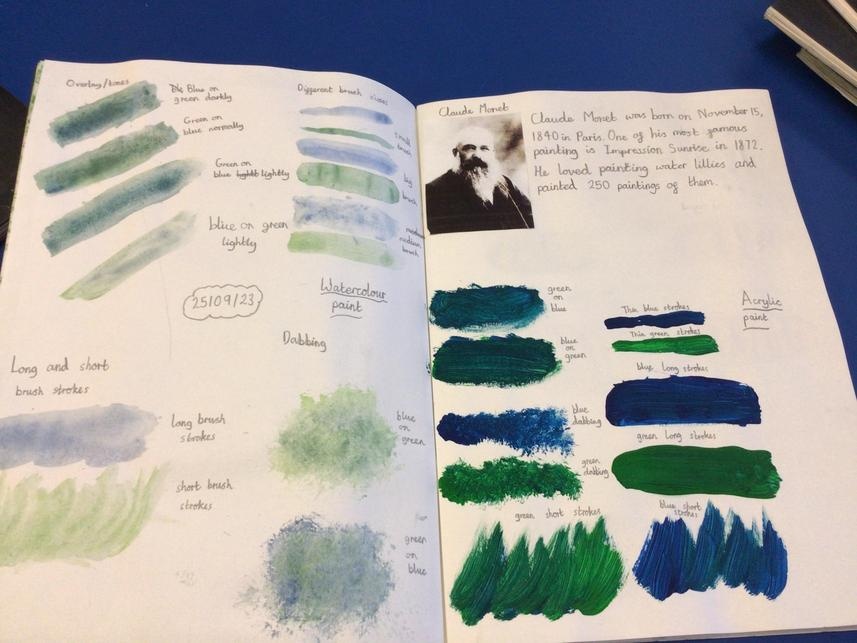 Overlay/tones
Blue on
green darkly
Green on
blue normally
Green on
blue lightly
blue on green
lightly
Different brush sizes
small
brush
big
brush
medium
brush
25/09/23
Watercolour
paint
Long and short
brush strokes
long brush
strokes
short brush
strokes
Dabbing
blue
on
green
green
on
blue
Claude Monet
Claude Monet was born on November 15,
1840 in Paris. One of his most famous
painting is Impression Sunrise in 1872.
He loved painting water lillies and
painted 250 paintings of them.
Acrylic
paint
green
on
blue
blue
on
green
blue
dabbing
green
dabbing
green short strokes
Thin blue strokes
Thin green strokes
blue long strokes
green long strokes
blue short
strokes